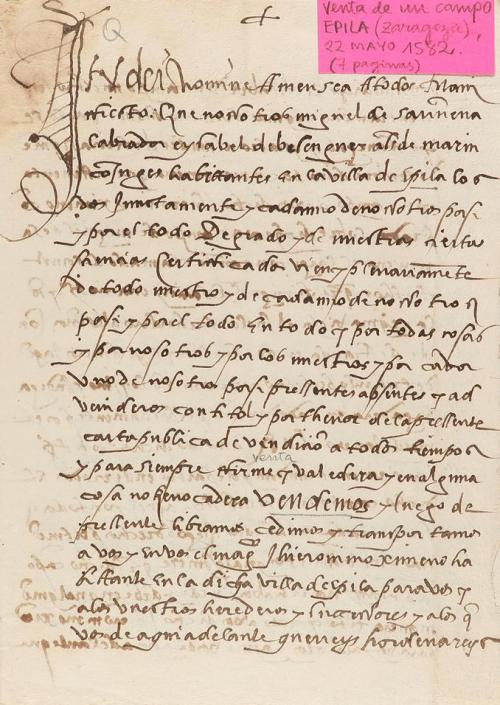 venta de un campo
EPILA (Zaragoza),
22 MAYO 1582.
(7 paginas)
In dei Nomine Amen sea A todos Mani
fiesto. Que nosotros miguel de sarinena
labrador e ysabel de besengues als de marin
conjuges habitantes en la villa de Epila los
dos Junctamente y cada uno de nosotros por si
y por el todo De grado y de nuestras ciertas
sciencias Certificados vien y plenariamente
de todo nuestro y de cada uno de nosotros
por si y por el todo En todo y por todas cosas
y por nosotros y por los nuestros y por cada
uno de nosotros por si pressentes absentes y ad
venideros con titol y por thenor de la pressente
carta publica de vendicion a todos tiempos
venta
y para siempre firme y valedera y en alguna
cosa no Revocadera Vendemos y luego de
pressente libramos, cedimos y transportamos
a vos y en vos el mag Jheronimo Ximeno ha
bitante en la dicha villa de Epila para vos y
a los vuestros herederos y successores y a los q
vos de aqui adelante querreys hordenareys